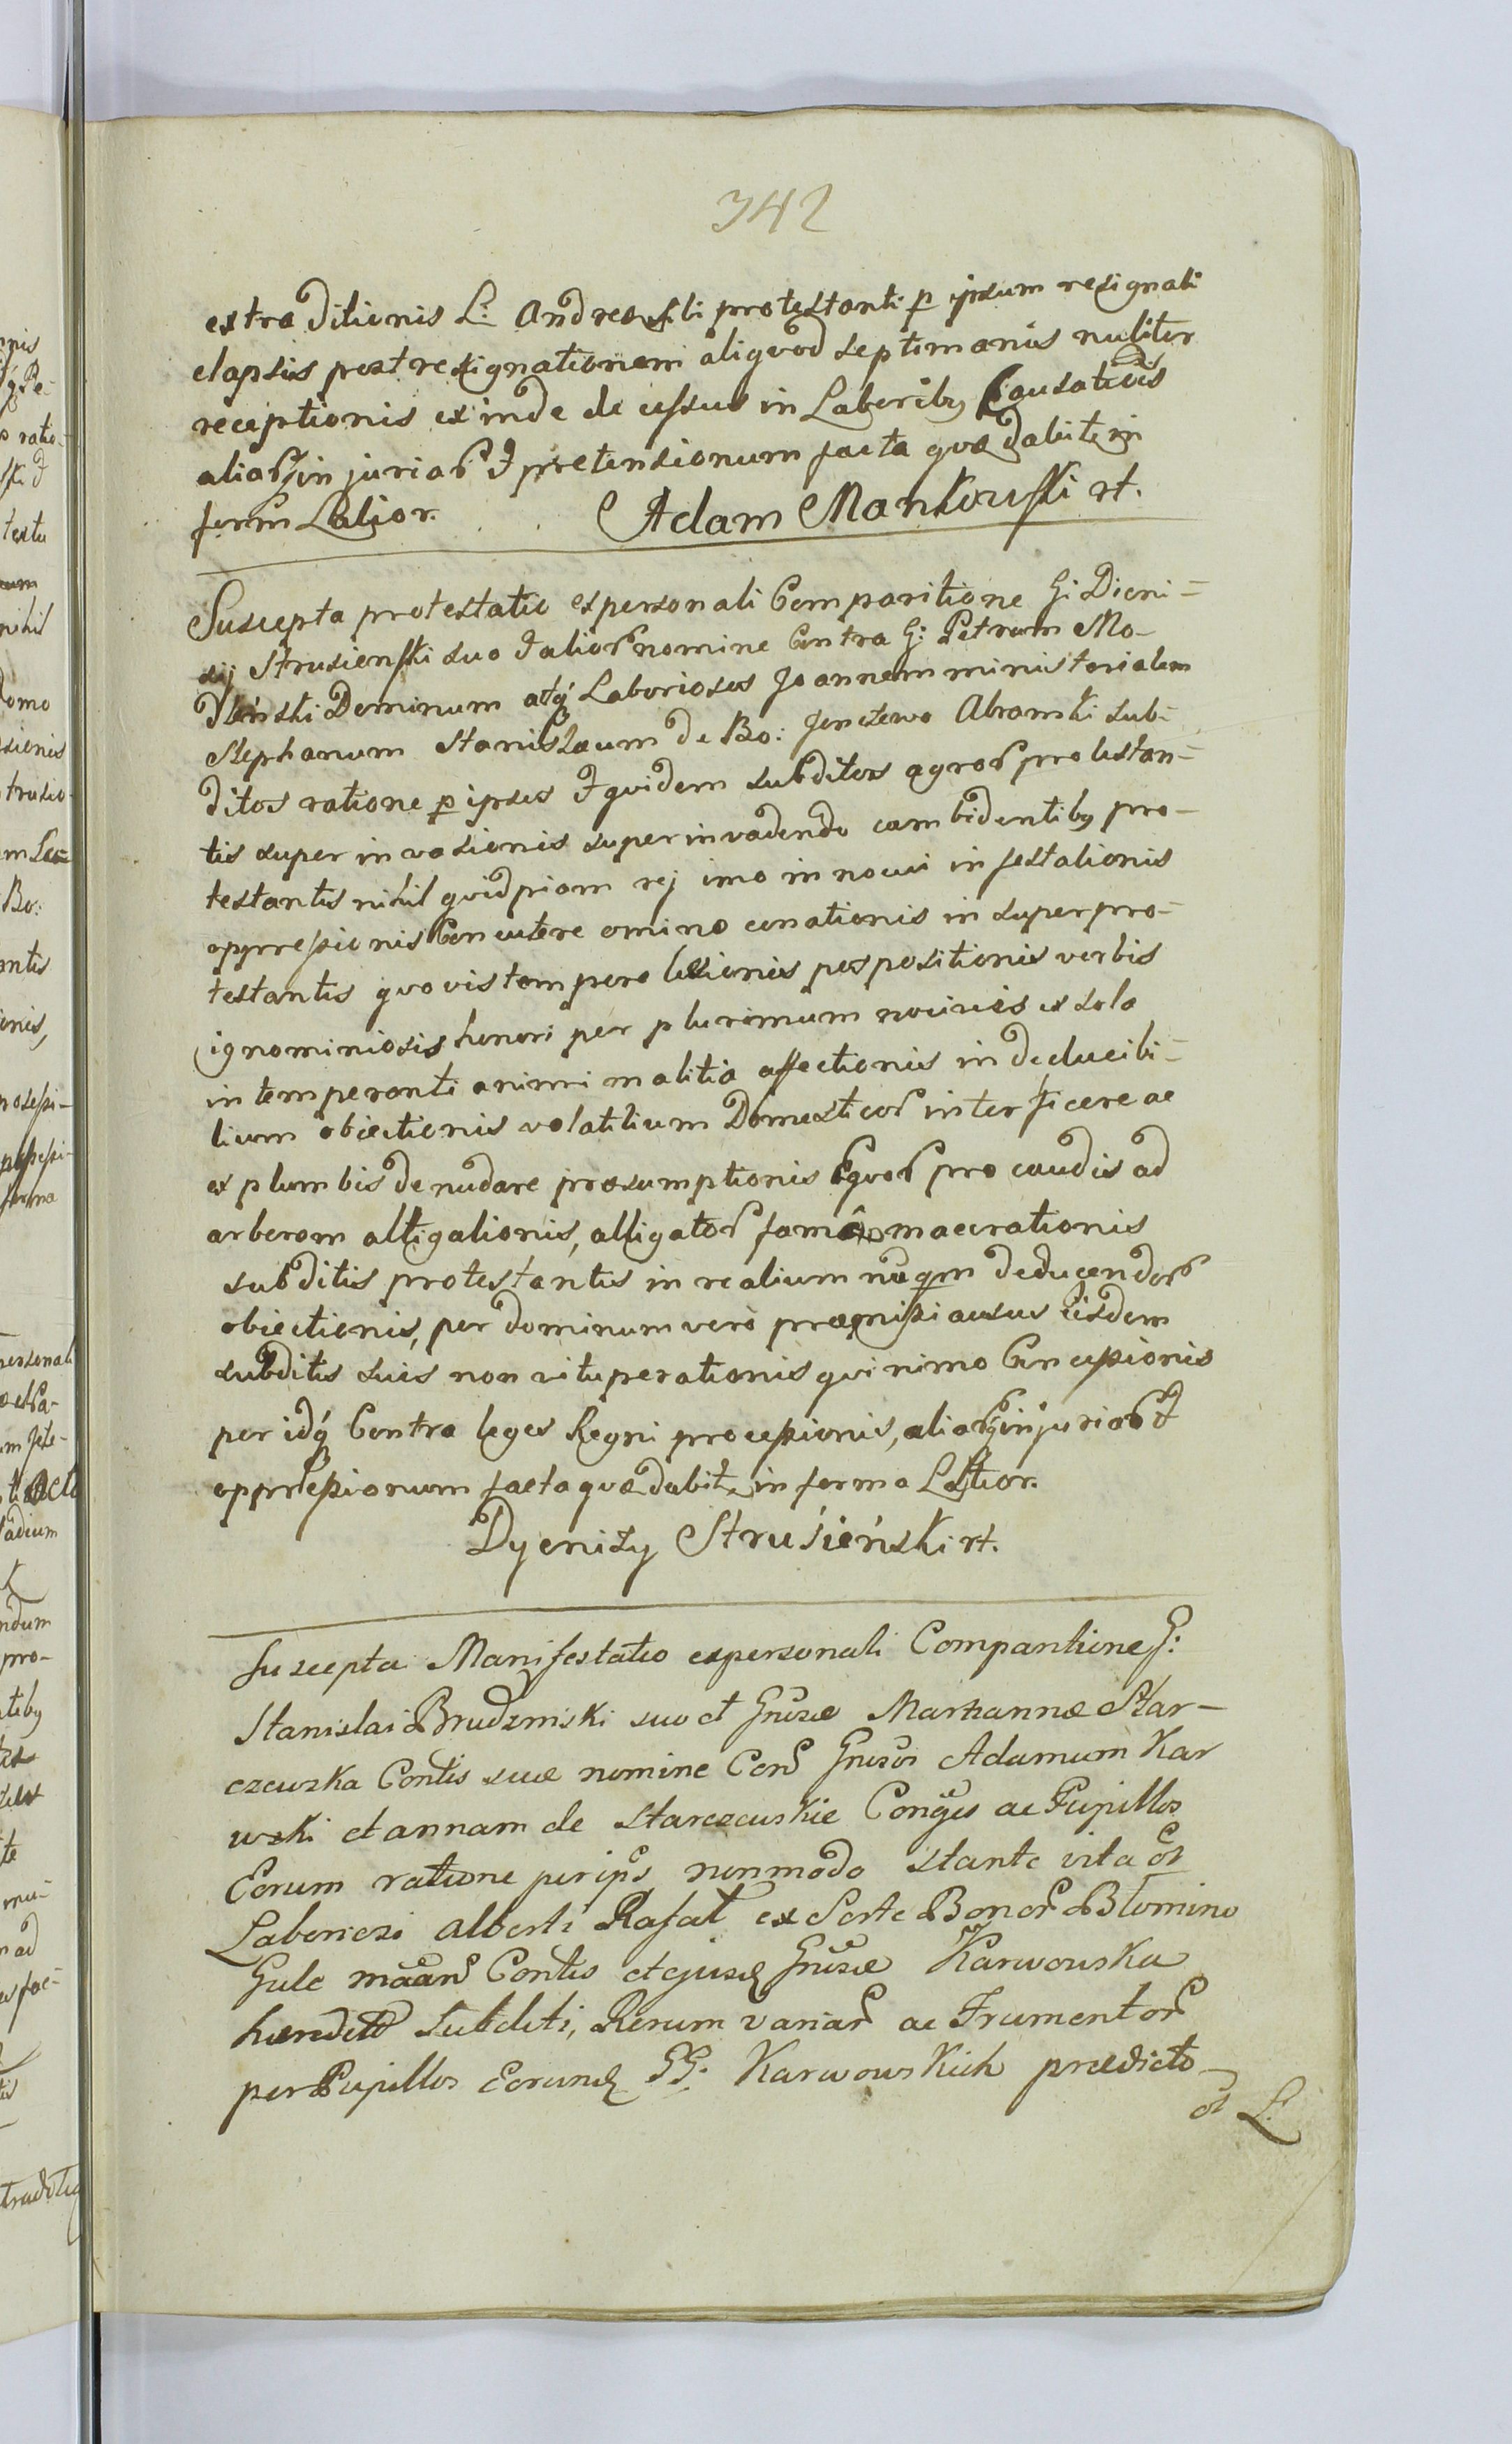 342
extraditionis L: Andreae sibi protestanti p ipsum resignati
elapsis post resignationem aliqvod septimanis nuliter
receptionis exinde decessus in Laboriby Causationis
aliarq injuriar & pretensionum facta qvae dabit in
form Latior. Adam Mankowski rt.
Suscepta protestatio ex personali Comparitione Gi Dioni=
sij Strusienski suo & alior nomine Contra G: Petrum Mo-
dleński Dominum atq Laboriosos Joannem ministerialem
Stephanum Stanislaum de Bo: Jenczewo Abramki sub=
ditos ratione p ipsos & qvidem subditos agror protestan=
tis super invasionis superinvadendo cum bidentiby pro-
testantis nihil qvidpiam rej imo innocui infestationis
oppressionis Concutere omino conationis in super pro-
testantis qvovis tempore lesionis pospositionis verbis
ignominiosis honori per plurimum nocivis ex sola
intemperanti animi malitia affectionis in deducibi=
lium obiectionis volatilium Domesticor interficere ac
ex plumbis denudare praesumptionis Eqvor pro caudis ad
arborem alligationis, alligator fame macerationis
subditis protestantis in realium nuqm deducendor
obiectionis, per dominum vero praemissi ausus eisdem
subditis suis non vituperationis qvinimo Concessionis
per idq Contra leges Regni processionis, aliarq injuriar &
oppressionum facta qvae dabit in forma Latior.
Dyenizy Strusieński rt.
Suscepta Manifestatio ex personali Comparitione G:
Stanislai Brudzinski suo et Gnrosae Marhannae Star-
czewska Contis suae nomine Con Gnrosos Adamum Kar
wski et annam de Starczewskie Conges ac Pupillos
Eorum ratione per ips nonmodo stante vita ol
Laboriosi Alberti Rafał ex Sorte Bonor Błomino
Gule Contis et ejusd Gnrosae Karwowska
haered subditi, Rerum variar ac Frumentor
per Pupillos Eorund GG: Karwowskich praedicto
ol L: